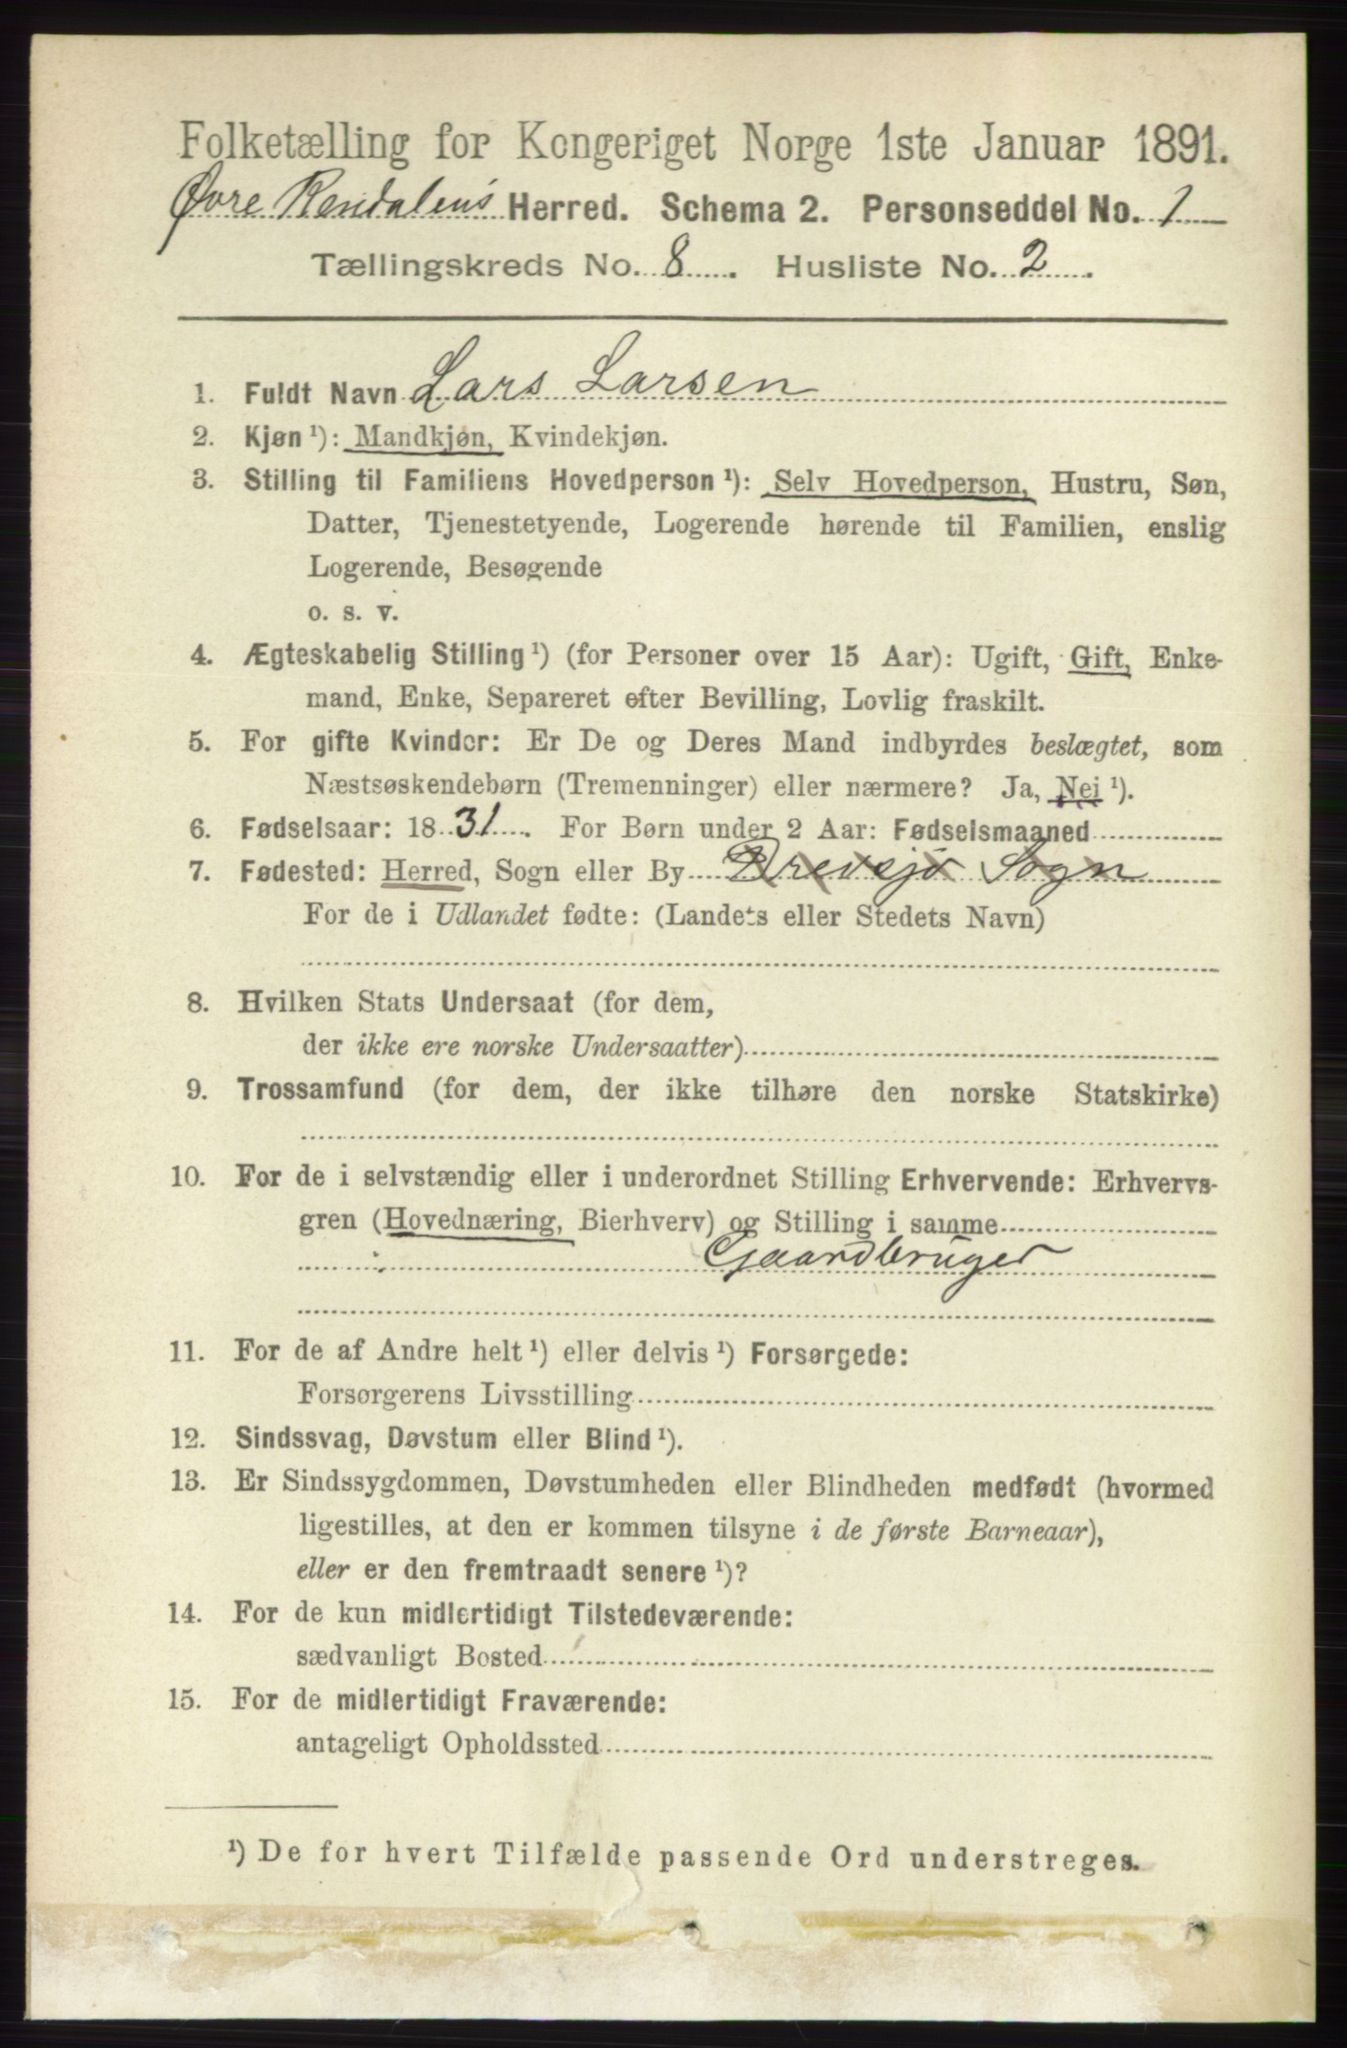 Folketælling for Kongeriget Norge 1ste Januar 1891.
Øvre Rendalens Herred. Schema 2. Personseddel No. 1
Tællingskreds No. 8. Husliste No. 2.
1. Fuldt Navn Lars Larsen
2. Kjøn ¹): Mandkjøn, Kvindekjøn.
3. Stilling til Familiens Hovedperson ¹): Selv Hovedperson, Hustru, Søn,
Datter, Tjenestetyende, Logerende hørende til Familien, enslig
Logerende, Besøgende
o. s. v.
4. Ægteskabelig Stilling ¹) (for Personer over 15 Aar): Ugift, Gift, Enke-
mand, Enke, Separeret efter Bevilling, Lovlig fraskilt.
5. For gifte Kvinder: Er De og Deres Mand indbyrdes beslægtet, som
Næstsøskendebørn (Tremenninger) eller nærmere? Ja, Nei ¹).
6. Fødselsaar: 1831. For Børn under 2 Aar: Fødselsmaaned
7. Fødested: Herred, Sogn eller By Drevsjø Sogn
For de i Udlandet fødte: (Landets eller Stedets Navn)
8. Hvilken Stats Undersaat (for dem,
der ikke ere norske Undersaatter)
9. Trossamfund (for dem, der ikke tilhøre den norske Statskirke)
10. For de i selvstændig eller i underordnet Stilling Erhvervende: Erhvervs-
gren (Hovednæring, Bierhverv) og Stilling i samme
Gaardbruger
11. For de af Andre helt ¹) eller delvis ¹) Forsørgede:
Forsørgerens Livsstilling
12. Sindssvag, Døvstum eller Blind ¹).
13. Er Sindssygdommen, Døvstumheden eller Blindheden medfødt (hvormed
ligestilles, at den er kommen tilsyne i de første Barneaar),
eller er den fremtraadt senere ¹)?
14. For de kun midlertidigt Tilstedeværende:
sædvanligt Bosted
15. For de midlertidigt Fraværende:
antageligt Opholdssted
¹) De for hvert Tilfælde passende Ord understreges.